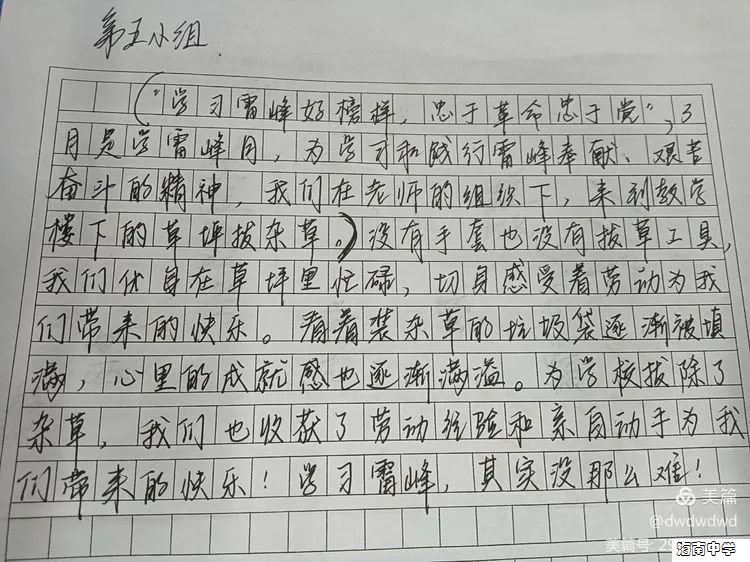 第五小组
（“学习雷峰好榜样，忠于革命忠于党”，3
月是学雷峰月，为学习和践行雷峰奉献、艰苦
奋斗的精神，我们在老师的组织下，来到教学
楼下的草坪拔杂草。）没有手套也没有拔草工具，
我们伏身在草坪里忙碌，切身感受着劳动为我
们带来的快乐。看着装杂草的垃圾袋逐渐被填
满，心里的成就感也逐渐满溢。为学校拔除了
杂草，我们也收获了劳动经验和亲自动手为我
们带来的快乐！学习雷峰，其实没那么难！
美篇
@dwdwdwd
美篇号: 29
河南中学